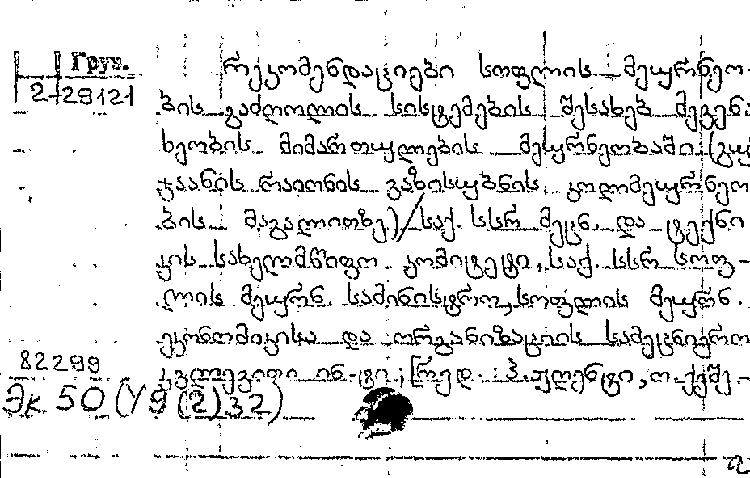 Груз.
2-29121
რეკომენდაციები სოფლის მეურნეო-
ბის გაძღოლის სისტემების შესახებ მევენა
ხეობის მიმართულების მეურნეობაში (გურ
ჯაანის რაიონის ველისციხის კოლმეურნეო
ბის მაგალითზე) / საქ. სსრ მეცნ. და ტექნი
კის სახელმწიფო კომიტეტი, საქ. სსრ სოფ-
ლის მეურნ. სამინისტრო, სოფლის მეურნ.
ეკონომიკისა და ორგანიზაციის სამეცნიერო
კვლევითი ინ-ტი; [რედ.
82299
Эк 50 (У9(2)32)